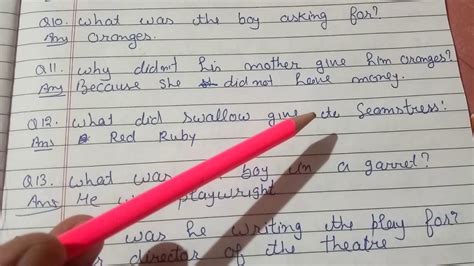 Q10. What was the boy asking for?
Ans Oranges.
Q11. why didn't his mother give him oranges?
Ans Because she did not have money.
Q12. What did swallow give to Seamstress?
Ans Red Ruby
Q13. what was boy in a garret?
Ans He playwright
was he writing the play for?
director of the theatre